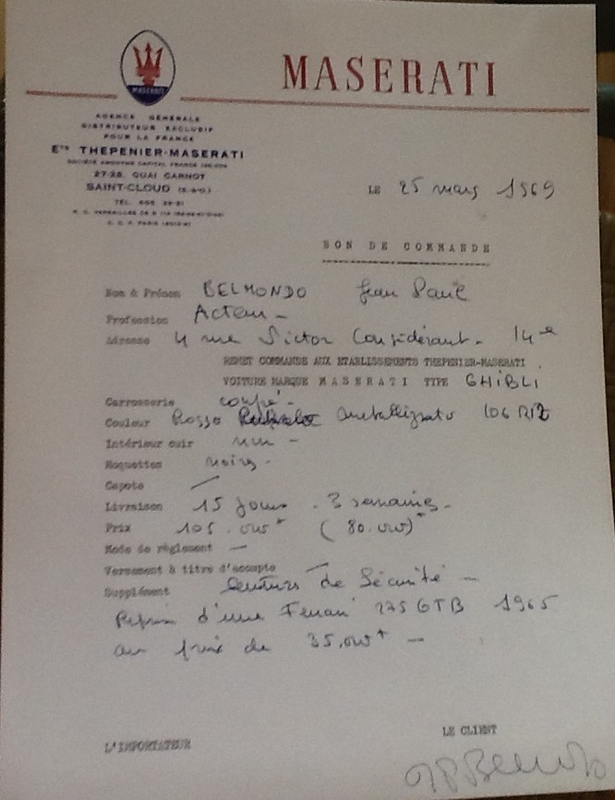 MASERATI
MASERATI
AGENCE GÉNÉRALE
DISTRIBUTEUR EXCLUSIF
POUR LA FRANCE
Ets THEPENIER-MASERATI
27-28, QUAI CARNOT
SAINT-CLOUD (S.-&-O.)
LE 25 mars 1969
BON DE COMMANDE
Nom & Prénom BELMONDO Jean Paul
Profession Acteur -
Adresse 4 rue Victor Considérant - 14e
REMET COMMANDE AUX ETABLISSEMENTS THEPENIER-MASERATI
VOITURE MARQUE MASERATI TYPE GHIBLI
Carrosserie coupé -
Couleur Rosso metallizzato 106 R12
Intérieur cuir -
Moquettes noires -
Capote
Livraison 15 jours . 3 semaines -
Prix 105.000+ (80.000)+
Mode de règlement -
Versement à titre d'acompte
Supplément Ceintures de Sécurité -
Reprise d'une Ferrari 275 GTB 1965
au prix de 35,000+ -
L'IMPORTATEUR
LE CLIENT
JP Belmondo